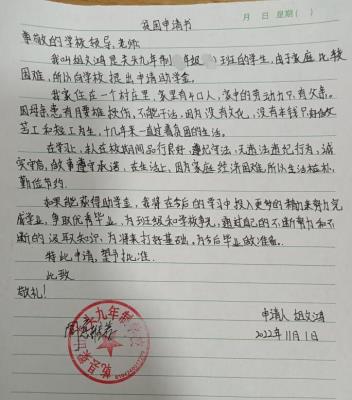 贫困申请书
月 日 星期( )
尊敬的学校领导、老师:
我叫胡文鸿是关九年制 年级 班的学生,由于家庭比较
困难,所以向学校提出申请助学金。
我家住在一个村庄里,家里有4口人,家中的劳动力只有父亲。
因母亲患有月要椎损伤,不能干活,因为没有文化,没有本钱只好做
苦工和轻工为生,十几年来一直过着贫困的生活。
在学习上,本人在校期间品行良好,遵纪守法,无违法违纪行为,诚
实守信,做事遵守承诺,在生活上,因为家庭经济困难,所以生活朴素,
勤俭节约。
如果能获得助学金,我将在今后的学习中投入更多的精力来努力完
成学业,争取优秀毕业,为班级和学校争光,通过自己的不断努力和不
断的汲取知识,为将来打好基础,为今后毕业做准备。
特此申请,望予批准.
此致
敬礼!
申请人 胡文鸿
2022年11月1日
九年制